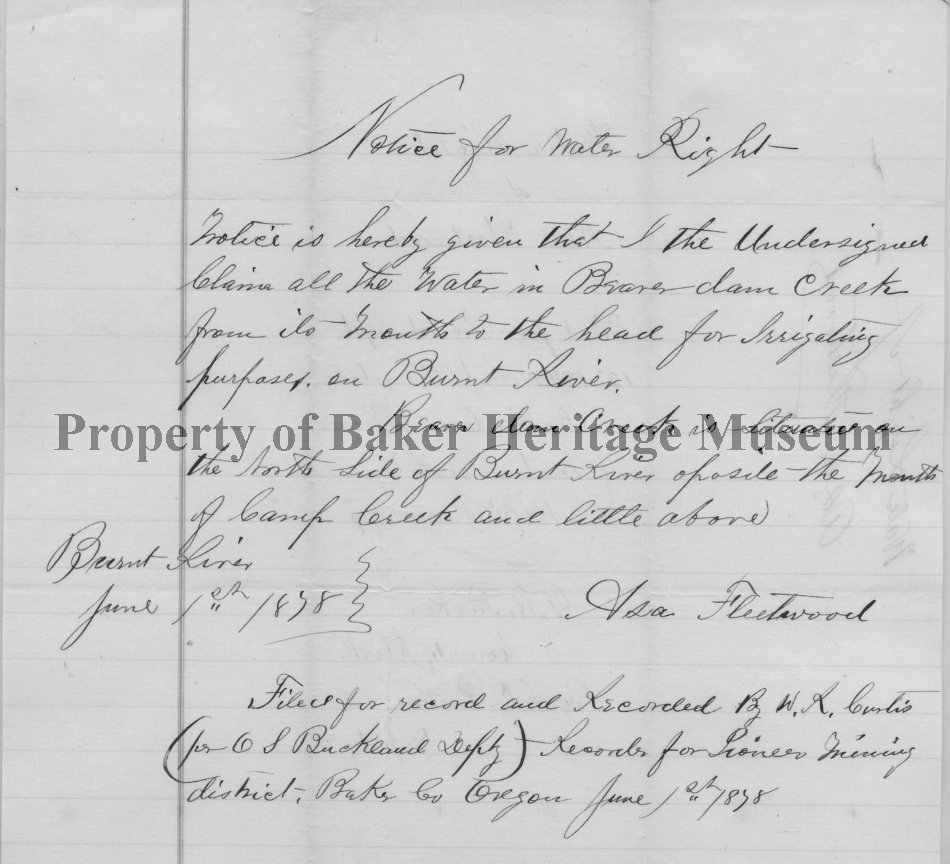 Notice for Water Right
Notice is hereby given that I the Undersigned
Claim all the Water in Beaver dam Creek
from its Mouth to the head for Irrigating
purposes. on Burnt River.
Property of Baker Heritage Museum
Beaver dam Creek is situated on
the North Side of Burnt River oposite the Mouth
of Camp Creek and little above
Burnt River
June 1st 1878
Asa Fleetwood
Filed for record and Recorded By W. R. Curtis
(per O S Buckland Depty) Recorder for Pioneer Mining
district. Baker Co Oregon June 1st 1878